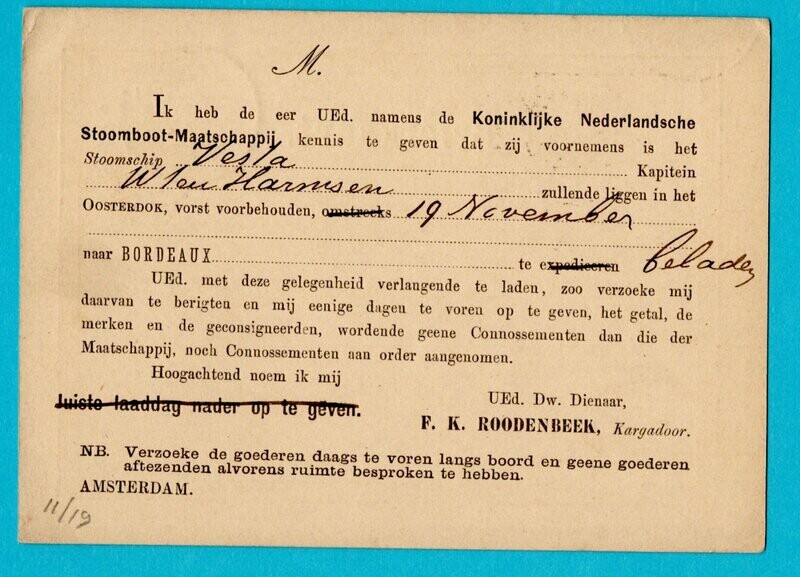 M.
Ik heb de eer UEd. namens de Koninklijke Nederlandsche
Stoomboot-Maatschappij kennis te geven dat zij voornemens is het
Stoomschip Vesta Kapitein
W ten Harmsen zullende liggen in het
OOSTERDOK, vorst voorbehouden, omstreeks 19 November
naar BORDEAUX te expedieeren beladen
UEd. met deze gelegenheid verlangende te laden, zoo verzoeke mij
daarvan te berigten en mij eenige dagen te voren op te geven, het getal, de
merken en de geconsigneerden, wordende geene Connossementen dan die der
Maatschappij, noch Connossementen aan order aangenomen.
Hoogachtend noem ik mij
UEd. Dw. Dienaar,
Juiste laaddag nader op te geven.
F. K. ROODENBEEK, Kargadoor.
NB. Verzoeke de goederen daags te voren langs boord en geene goederen
aftezenden alvorens ruimte besproken te hebben.
AMSTERDAM.
11/19